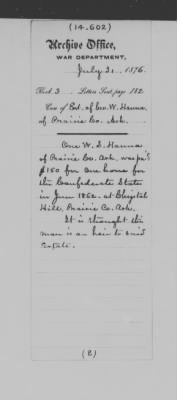 (14.602)
Archive Office,
WAR DEPARTMENT,
July 21, 1876.
Book 3 Letters Sent, page 182
Case of Est. of Geo. W. Hanna,
of Prairie Co. Ark.
One W. S. Hanna
of Prairie Co. Ark. was pd
$150 for one horse for
the Confederate States
in June 1862. at Chrystal
Hill, Prairie Co. Ark.
It is thought this
man is an heir to said
Estate.